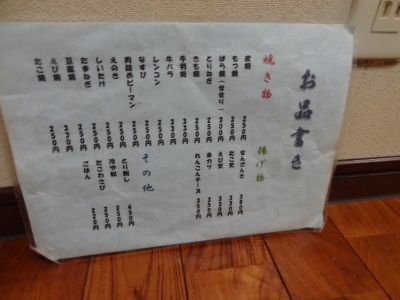 お品書き
焼き物
250円
もつ焼 250円
ばら焼（せせり） 300円
とりねぎ 250円
きも焼 250円
手羽焼 330円
牛バラ 330円
レンコン 250円
なすび 250円
肉詰めピーマン 250円
えのき 250円
しいたけ 250円
たまねぎ 250円
豆腐焼 250円
えび焼 330円
たこ焼 250円
揚げ物
せんざんき 380円
たこ天 330円
えび天 330円
串カツ 350円
れんこんチーズ 350円
その他
とり刺し 450円
冷や奴 250円
たこわさび 250円
ごはん 220円